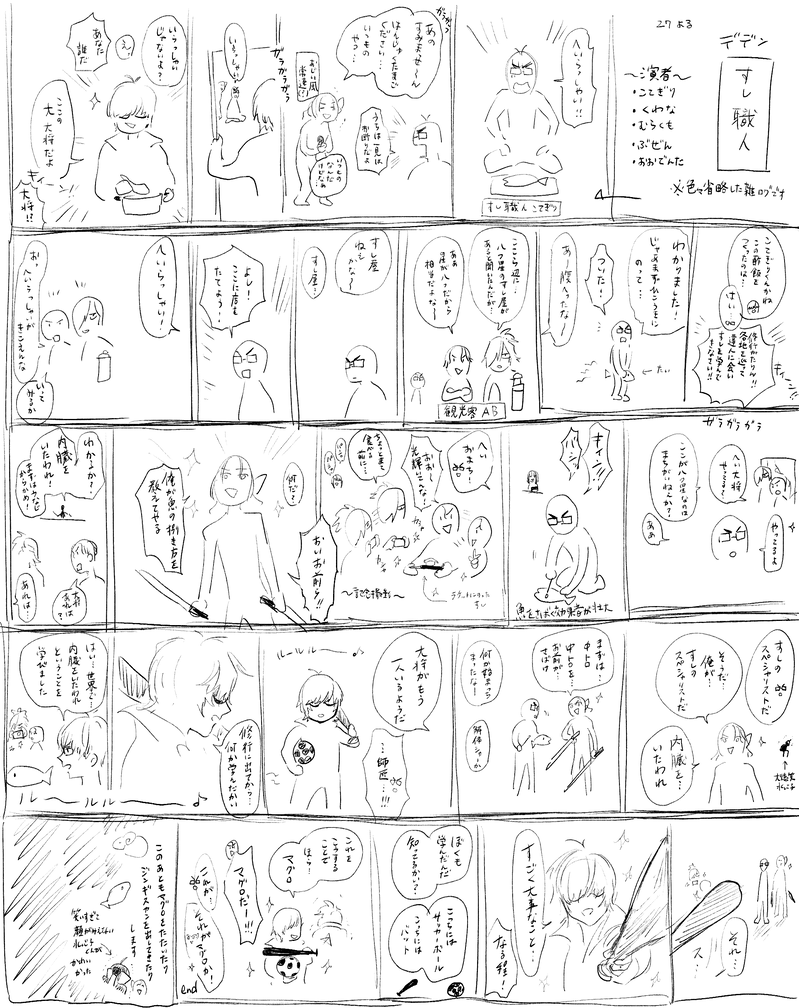 27 よる
デデン
すし職人
〜演者〜
・こてぎり
・くわな
・むらくも
・ぶぜん
・あおでんた
※色々省略した雑ログです
へいらっしゃい!!
すし職人 こてぎり
ガラガラ
あの
すみませ〜ん
はんじゅくたまご
ください…
いつもの
やつ…
うちは一見は
お断りだよ
おじい風
常連
いつもの
なんだ
けどなあ
ガラガラガラ
いらっしゃい
いらっしゃい
じゃないよ?
えっ
あなた
誰だ
ここの
大大将だよ
キィン
大将!!
こてぎりくんかね
この酢飯を
つくったのは
はい…
修行がたりん!!
各地を巡って
達人に会い
すしを学んで
きなさい!!
キィーン!!
わかりました!
じゃあまずはひこうきに
のって…
ついた!
…
あー腹へったな〜
ここら辺に…
八つ星のすし屋が
あると聞いたんだが…
ああ
星が八つだから
相当だよな〜
観光客 AB
すし屋
ねぇ
かな〜
すし屋…
よし!
ここに店を
たてよう〜
へいらっしゃい!
おっ
へいらっしゃいが
きこえんな
いって
みるか
ガラガラガラ
へい大将
やってる?
やってるよ
ここが八つ星なのは
まちがいねんか?
ああ
キィン!!
バシッ
魚をさばく効果音が壮大
へい
おまち!
おお〜
光輝いてんな!
ちょっとまて
食べる
前に…
〜記念撮影〜
おいお前ら!!
何だ?
俺が魚の捌き方を
教えてやる
わかるか?
内臓を
いたわれ!
大将
あれは…
すしの
スペシャリストだ
そうだ
俺が…
すしの
スペシャリストだ
内臓を…
いたわれ
まずは…
中トロ
中トロを…
お前が
さばけ
何か始まっち
まったな〜
解体ショーか
大将がもう
一人いるようだ
…師匠…!!!
ルールルー……♪
修行に出てから…
何か学んだかい
はい…世界で…
内臓をいたわれ
ということを
学びました
ルールルー♪
それ…
ス…
すごく大事なこと…
なる程!
ぼくも
学んだんだ
知ってるかい?
こっちには
サッカーボール
こっちには
バット
これを
こうする
ことで
ほら…
マグロ
マグロだー!!!
これが…
それがマグロか!
end
このあともマグロをたたいたり
ジンギスカンを出してきたり
します
笑いすぎて
顔がみえない
くんが
かわいかった